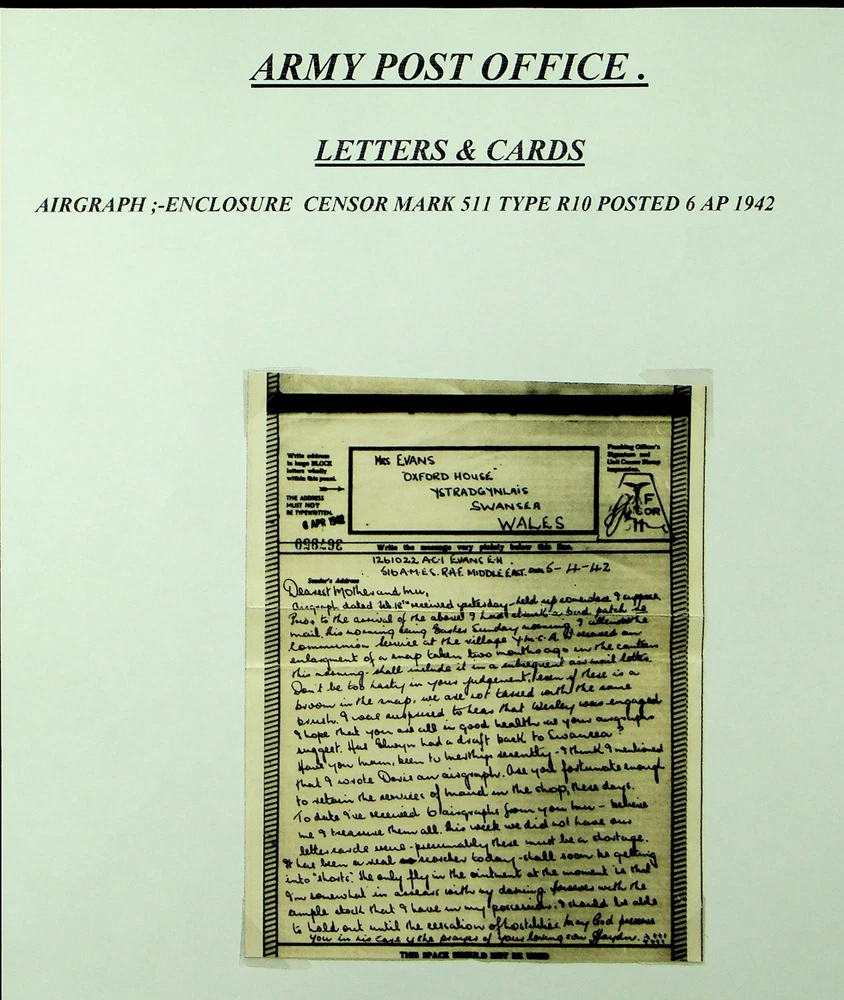 ARMY POST OFFICE .
LETTERS & CARDS
AIRGRAPH ;-ENCLOSURE CENSOR MARK 511 TYPE R10 POSTED 6 AP 1942
Write address
in large BLOCK
letters wholly
within this panel.
THE ADDRESS
MUST NOT
BE TYPEWRITTEN.
6 APR 1942
MRS EVANS
"OXFORD HOUSE"
YSTRADGYNLAIS
SWANSEA
WALES
Signature and
Unit Censor Stamp
Write the message very plainly below this line.
1261022 AC1 EVANS E.H.
516 A.M.E.S. R.A.F. MIDDLE EAST. Date 6-4-42
Sender's Address
Dearest Mother and
airgraph dated Feb. 18th received yesterday - held up somewhere I suppose
Prior to the arrival of the above I had struck a bad patch re
mail, this morning being Easter Sunday morning I attended the
Communion service at the village Y.M.C.A. I received an
enlargment of a snap taken two months ago in the canteen
this morning - shall include it in a subsequent air mail letter.
Don't be too hasty in your judgement, even if there is a
broom in the snap, we are not tarred with the same
brush. I was surprised to hear that Wesley was engaged
I hope that you are all in good health as your airgraphs
suggest. Has Elwyn had a draft back to Swansea?
Have you mam, been to Merthyr recently - I think I mentioned
that I wrote Doris an airgraph. Are you fortunate enough
to retain the services of a maid in the shop, these days.
To date I've received 6 airgraphs from you - believe
me I treasure them all. This week we did not have our
letter cards issue - presumably there must be a shortage.
It has been a real scorcher today - shall soon be getting
into "shorts". The only fly in the ointment at the moment is that
I'm somewhat in arrears with my darning however with the
ample stock that I have in my possession, I should be able
to hold out until the cessation of hostilities. May God preserve
you in his care is the prayer of your loving son Haydn. xxxx
THIS SPACE SHOULD NOT BE USED